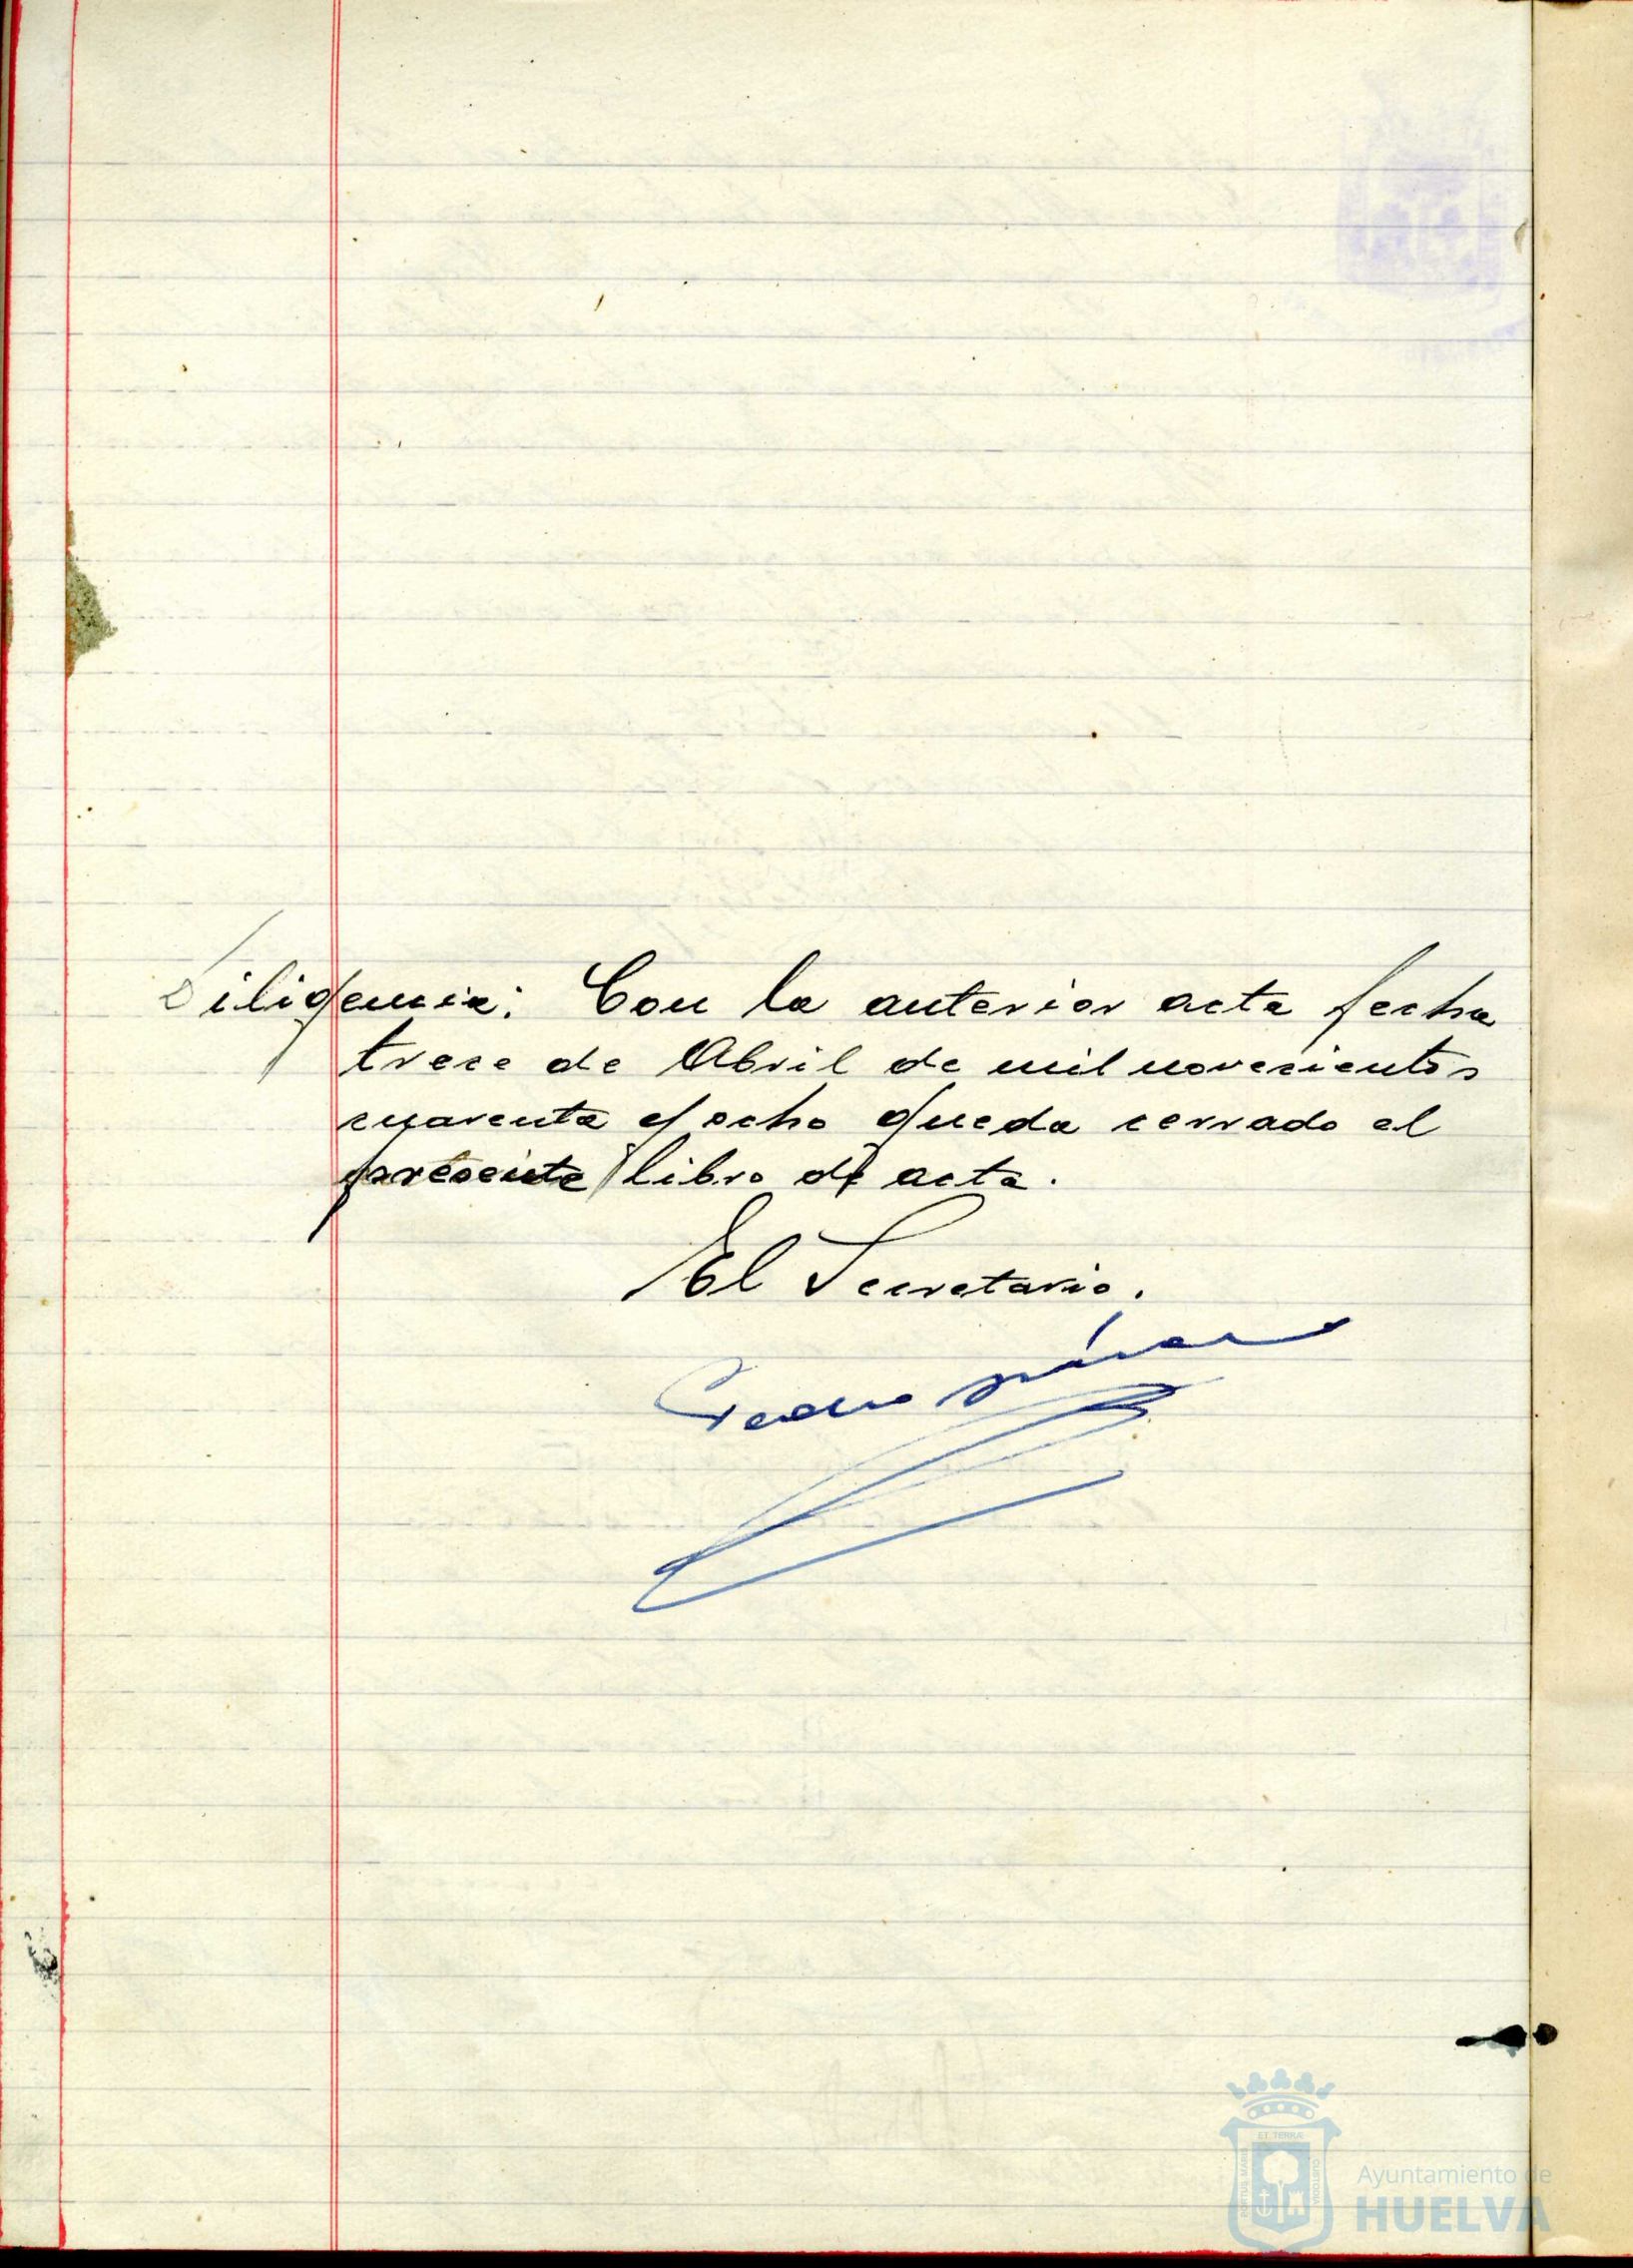 Diligencia: Con la anterior acta fecha
trece de Abril de mil novecientos
cuarenta y ocho queda cerrado el
presente libro de acta.
El Secretario.
Pedro
ET TERRAE
PORTUS MARIS
CUSTODIA
Ayuntamiento de
HUELVA